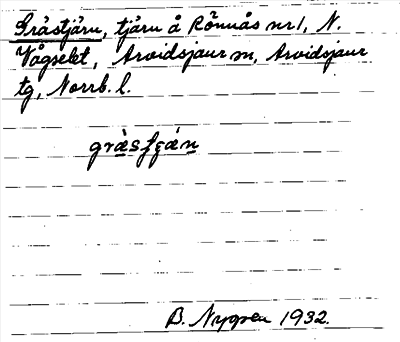 Gråstjärn, tjärn å Rönnås nr 1, N.
Vågselet, Arvidsjaur sn, Arvidsjaur
tg, Norrb. l.
B. Nygren 1932.